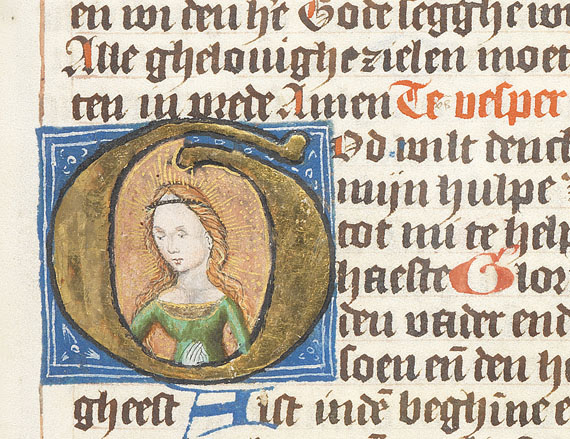 en wi den hē Gode segghe w
Alle ghelouighe zielen moet
ten in vrede Amen Te vesper
God wilt denck
mijn hulpe
tot mi te help
haeste Glor
den vader end
soen eñ den he
gheest Alst indē beghīne e